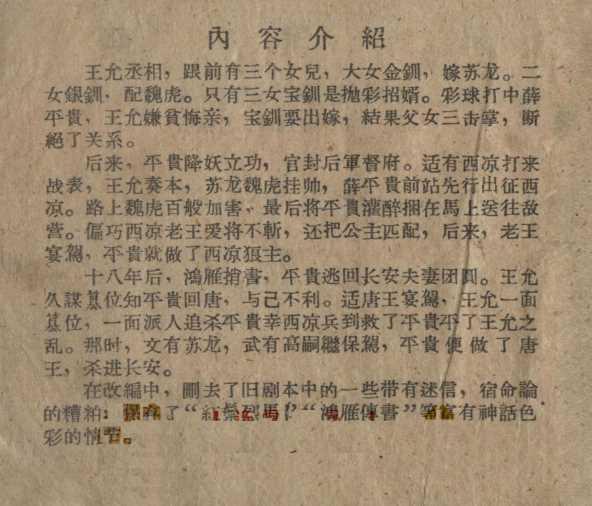 內容介紹
王允丞相，跟前有三个女兒，大女金釧，嫁苏龙。二
女銀釧，配魏虎。只有三女宝釧是拋彩招婿。彩球打中薛
平貴，王允嫌貧悔亲，宝釧要出嫁，結果父女三击掌，断
絕了关系。
后来，平貴降妖立功，官封后軍督府。适有西凉打来
战表，王允奏本，苏龙魏虎挂帅，薛平貴前站先行出征西
凉。路上魏虎百般加害，最后将平貴灌醉捆在馬上送往敌
营。偏巧西凉老王爱将不斬，还把公主匹配，后来，老王
宴駕，平貴就做了西凉狼主。
十八年后，鴻雁捎書，平貴逃回长安夫妻团圓。王允
久謀篡位知平貴回唐，与己不利。适唐王宴駕，王允一面
篡位，一面派人追杀平貴幸西凉兵到救了平貴平了王允之
乱。那时，文有苏龙，武有高嗣继保駕，平貴便做了唐
王，杀进长安。
在改編中，刪去了旧剧本中的一些带有迷信，宿命論
的糟粕：保存了“紅鬃烈馬”“鴻雁傳書”等富有神話色
彩的情节。